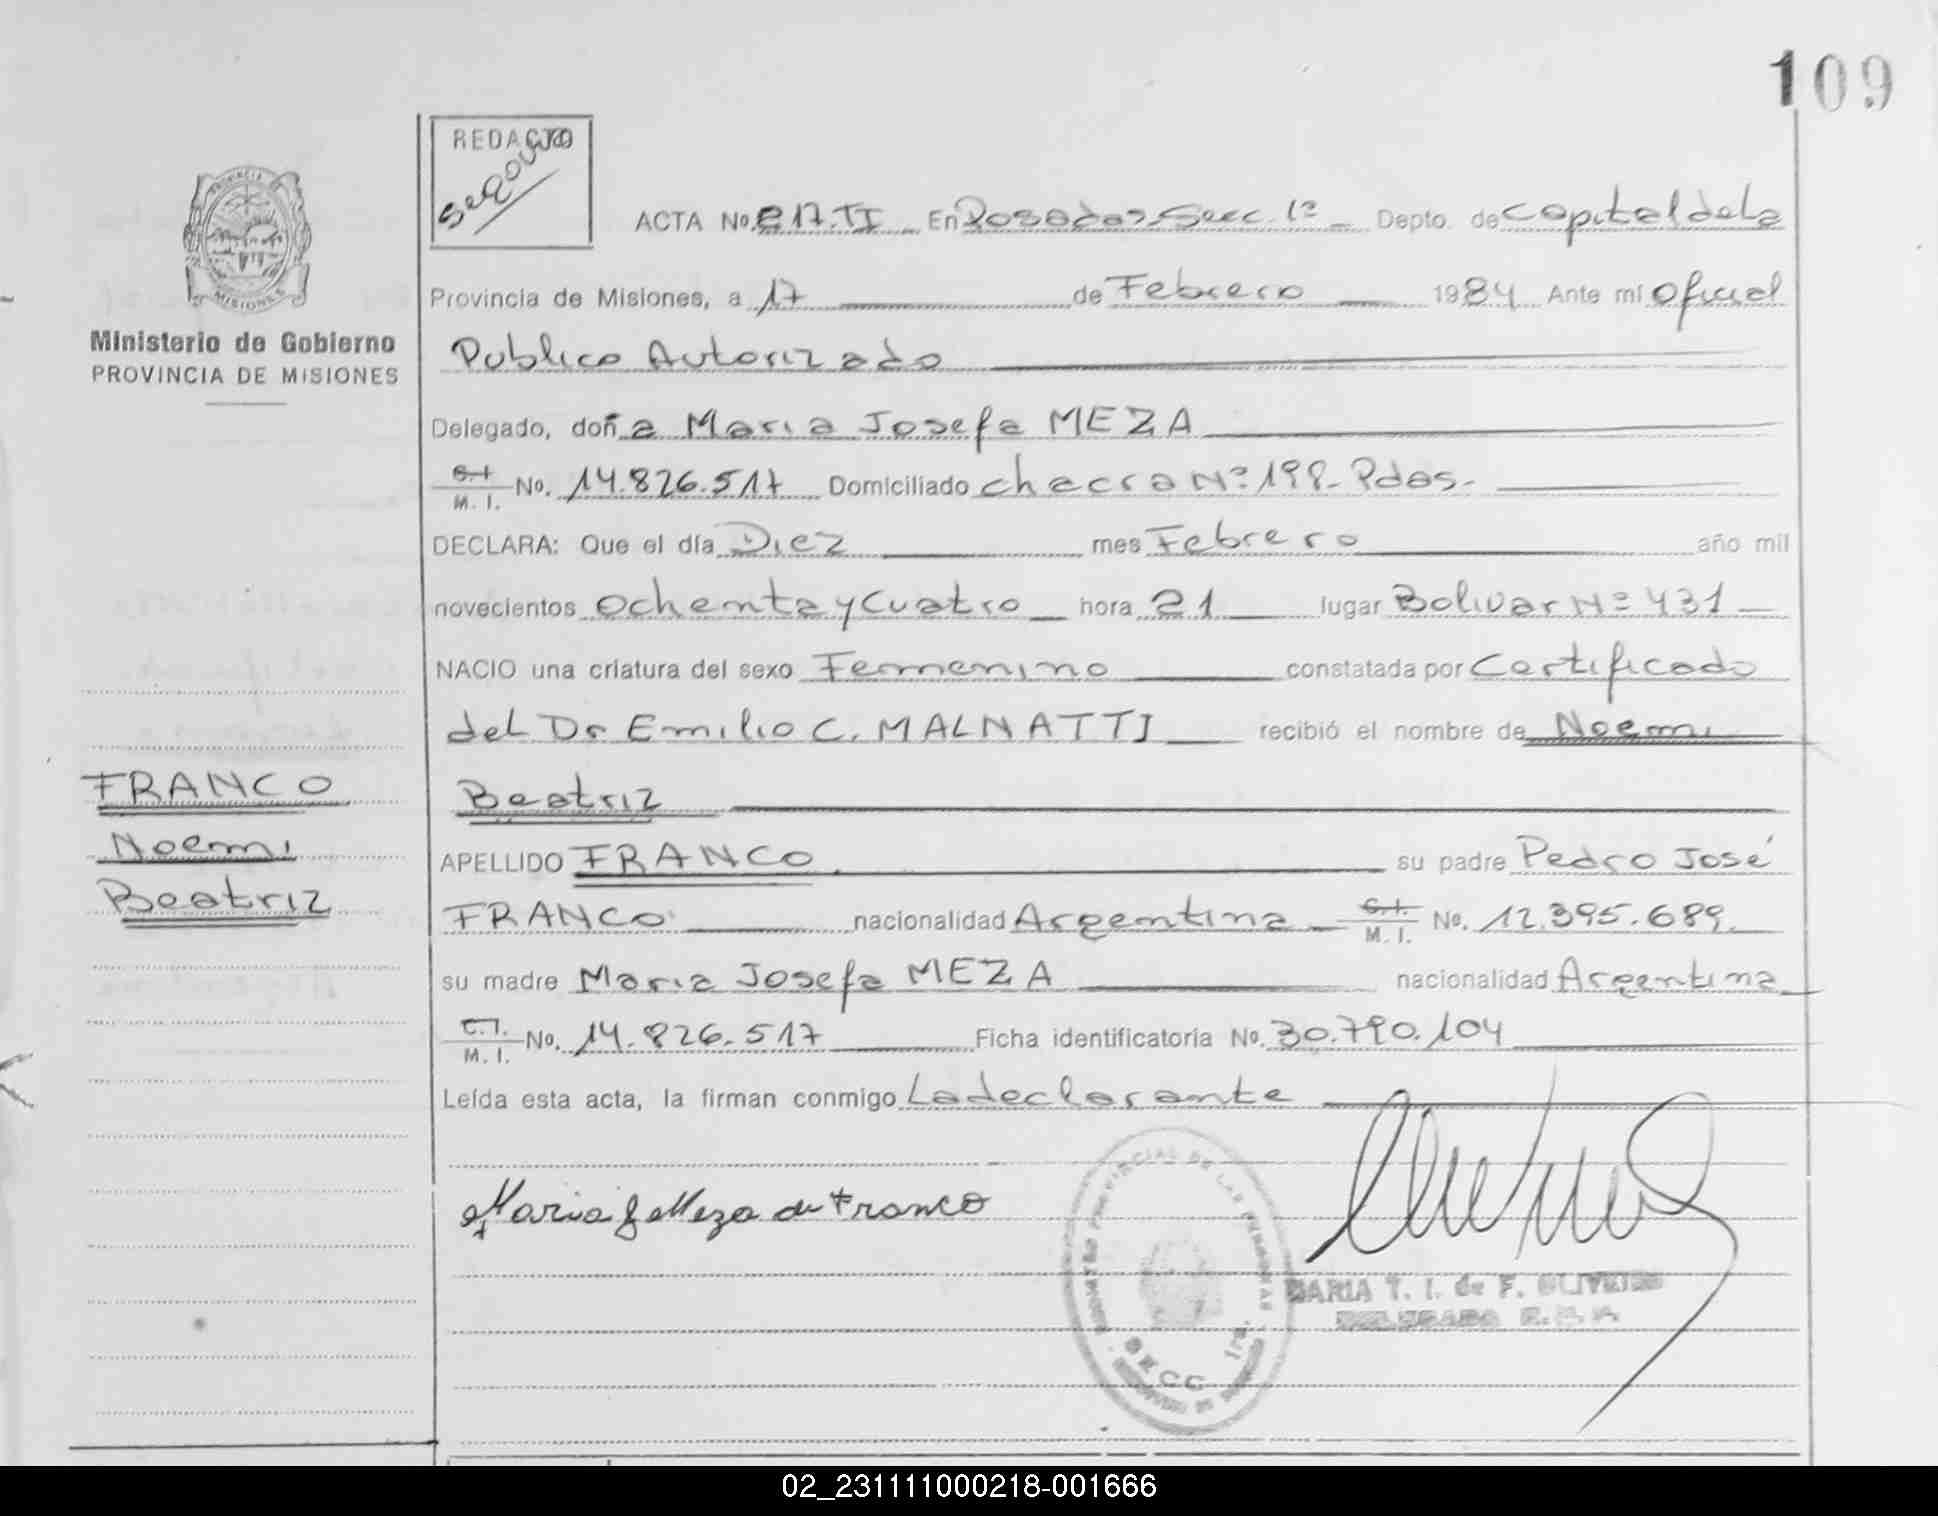 109
REDACTO
ACTA No. 217.TI En Posadas Secc. 1ª Depto. de Capital de la
Provincia de Misiones, a 17 de Febrero 1984 Ante mí Oficial
Ministerio de Gobierno
PROVINCIA DE MISIONES
Publico Autorizado
Delegado, doña Maria Josefa MEZA
C.I. M. I. No. 14.826.517 Domiciliado chacra Nº 198- Pdas.
DECLARA: Que el día Diez mes Febrero año mil
novecientos Ochenta y Cuatro hora 21 lugar Bolivar Nº 431
NACIO una criatura del sexo Femenino constatada por Certificado
del Dr Emilio C. MALNATTI recibió el nombre de Noemi
Beatriz
FRANCO
Noemi
Beatriz
APELLIDO FRANCO su padre Pedro José
FRANCO nacionalidad Argentina C.I. M. I. No. 12.395.689
su madre Maria Josefa MEZA nacionalidad Argentina
C.I. M. I. No. 14.826.517 Ficha identificatoria No. 30.790.104
Leída esta acta, la firman conmigo La declarante
Maria J Meza de Franco
PROVINCIAL DE LAS PERSONAS
SECC. 1ra.
MARIA T. I. de F. OLIVEIRA
DELEGADO
02_231111000218-001666